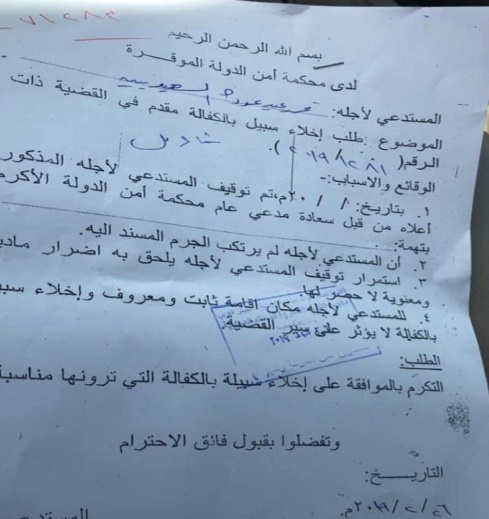 بسم الله الرحمن الرحيم
لدى محكمة أمن الدولة الموقرة
المستدعي لأجله:
الموضوع :طلب إخلاء سبيل بالكفالة مقدم في القضية ذات
الرقم( ).
الوقائع والاسباب:-
١. بتاريخ: / / ٢٠م،تم توقيف المستدعي لأجله المذكور
أعلاه من قبل سعادة مدعي عام محكمة أمن الدولة الأكرم
بتهمة:
٢. أن المستدعي لأجله لم يرتكب الجرم المسند اليه.
٣. استمرار توقيف المستدعي لأجله يلحق به اضرار مادية
ومعنوية لا حصر لها.
٤. للمستدعي لأجله مكان إقامة ثابت ومعروف وإخلاء
بالكفالة لا يؤثر على سير القضية.
الطلب:
التكرم بالموافقة على إخلاء سبيلة بالكفالة التي ترونها مناسبة
وتفضلوا بقبول فائق الاحترام
التاريــــخ:
٢٦/٢/٢٠١٩م.